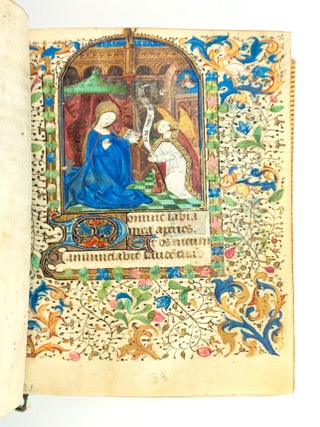 Domine labia
mea aperies.
Et os meum
annunciabit laudem tuā
33